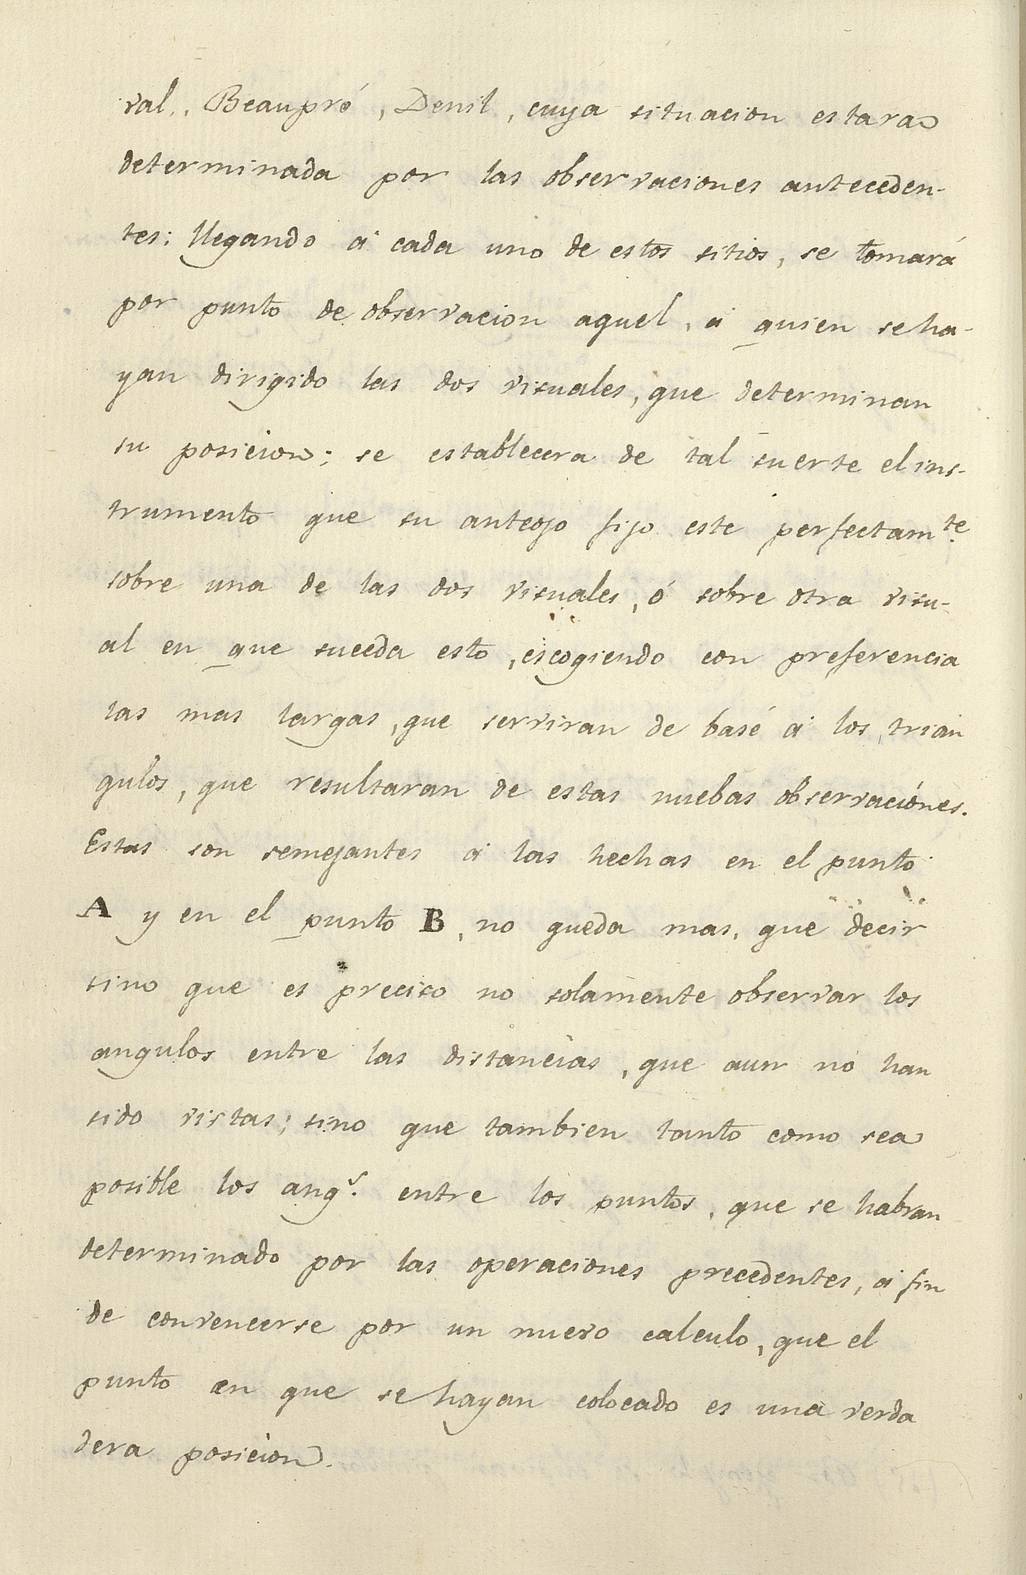 val., Beaupré, Denil, cuya situacion estara
determinada por las observaciones anteceden-
tes; llegando á cada uno de estos sitios, se tomará
por punto de observacion aquel, á quien se ha-
yan dirigido las dos visuales, que determinan
su posicion; se establecera de tal suerte el ins-
trumento que su anteojo fijo este perfectam.te
sobre una de las dos visuales, ó sobre otra visu-
al en que suceda esto, escogiendo con preferencia
las mas largas, que serviran de base á los trian
gulos, que resultaran de estas nuebas observaciónes.
Estas son semejantes á las hechas en el punto
A y en el punto B, no queda mas, que decir
sino que es preciso no solamente observar los
angulos entre las distancias, que aun no han
sido vistas; sino que tambien tanto como sea
posible los ang.s entre los puntos, que se habran
determinado por las operaciones precedentes, á fin
de convencerse por un nuevo calculo, que el
punto en que se hayan colocado es una verda
dera posicion.